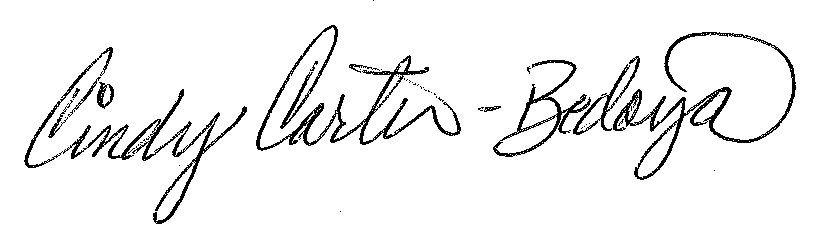 Cindy Carter-Bedoya